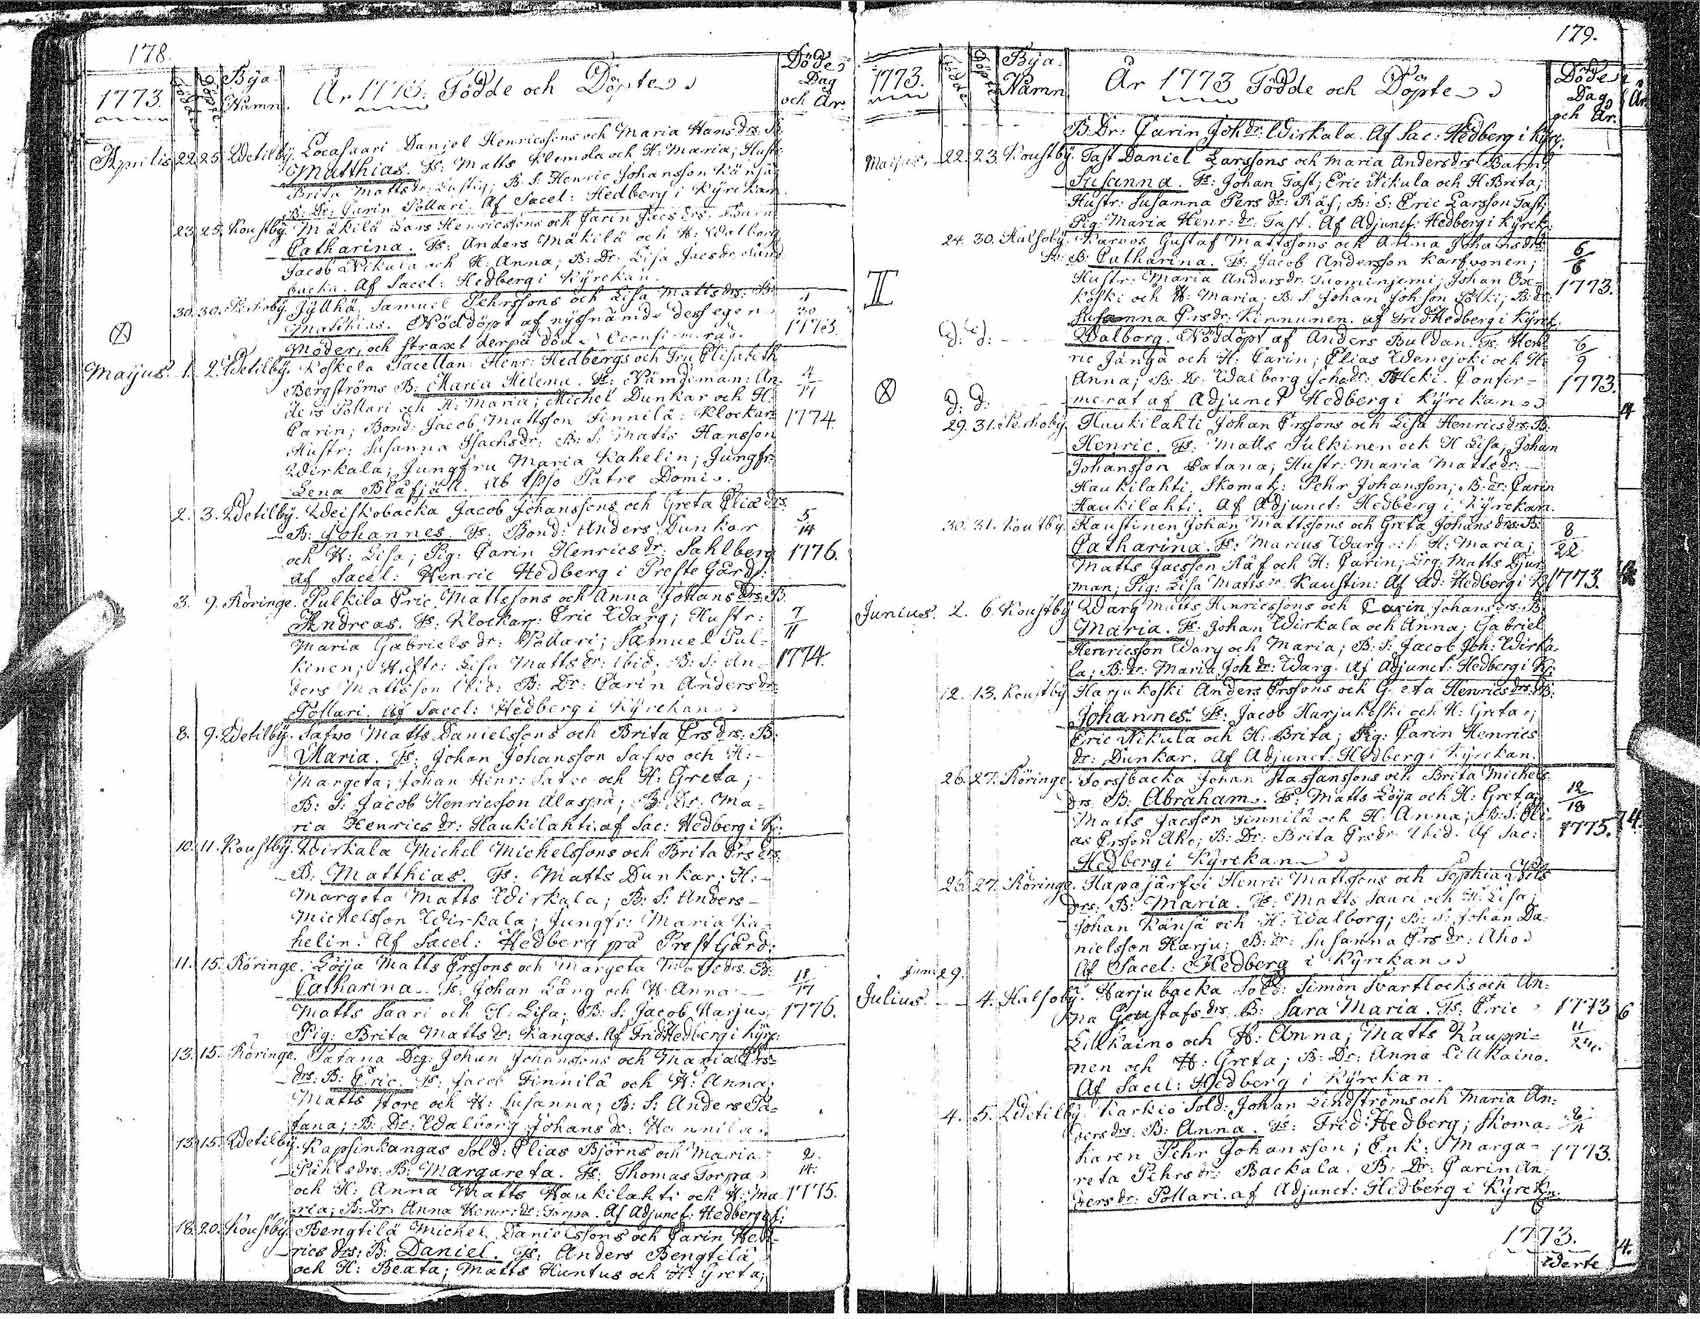 178.
1773.
Födde
Döpte
Bÿa Namn.
År 1773. Födde och Döpte
Döde Dag och År.
Aprilis 22. 25. Wetilbÿ. Daniel Henricssons och Maria Hans drs. B.
Matthias. Fs: Matts Klemola och H: Maria; Hustr:
Brita Matts dr: B: S: Henric Johansson Känsä;
B: Dr: Carin Pollari. Af Sacel: Hedberg i Kÿrckan.
23. 25. Koustbÿ. Mäkilä Lars Henricssons och Carin Jacs drs: Barn
Catharina. Fs: Anders Mäkilä och H: Walborg
Jacob Nikula och H: Anna; B: Dr: Lisa Jacs dr
backa. Af Sacel: Hedberg i Kÿrekan.
30. 30. Jÿlhä Samuel Pehrssons och Lisa Matts drs: B:
Matthias. Nöddöpt af dess egen
Moder, och straxt derpå död.
30
1773.
Maijus. 1. 2. Wetilbÿ. Koskela Sacellan: Henr: Hedbergs och Fru Elisabeth
Bergströms B: Maria Helena. Fs: Nämdeman: An-
ders Pollari och H: Maria; Michel Dunkar och H:
Carin; Bond: Jacob Mattsson Finnilä: Klockar:
Hustr: Susanna Isachs dr: B: S: Matts Hansson
Wirkala; Jungfru Maria Kahelin; Jungfr:
Lena Blåfjäll. Ab Ipso Patre Domi.
4
11
1774.
2. 3. Wetilbÿ. Weiskobacka Jacob Johanssons och Greta Elias drs.
B: Johannes. Fs: Bond: Anders Dunkar
och H: Lisa; Pig: Carin Henrics dr: Sahlberg
af Sacel: Henric Hedberg i Preste Gård:
5
14
1776.
3. 9. Röringe. Pulkila Eric Mattssons och Anna Johans drs. B.
Andreas. Fs: Klockar: Eric Warg; Hustr:
Maria Gabriels dr: Pollari; Samuel Pul-
kinen; Hustr: Lisa Matts dr: ibid. B: S: An-
ders Mattsson ibid: B: Dr: Carin Anders dr:
Pollari. Af Sacel: Hedberg i Kÿrekan
7
11
1774.
8. 9. Wetilbÿ. Safwo Matts Danielssons och Brita Ers drs: B:
Maria. Fs: Johan Johansson Safwo och H:
Margeta; Johan Henr: Safwo och H: Greta;
B: S: Jacob Henricsson Alaspä; B: Dr: Ma-
ria Henrics dr: Haukilahti. af Sac: Hedberg i Kÿ:
10. 11. Koustbÿ. Wirkala Michel Michelssons och Brita Ers drs.
B: Matthias. Fs: Matts Dunkar; H:
Margeta Matts Wirkala; B: S: Anders
Michelsson Wirkala; Jungfr: Maria Ka-
helin. Af Sacel: Hedberg på Prest Gård:
11. 15. Röringe. Löija Matts Erssons och Margeta Matts drs. B:
Catharina. Fs: Johan Lång och H: Anna
Matts Saari och H: Lisa; B: S: Jacob Harju;
Pig: Brita Matts dr: Kangas. Af Fred: Hedberg i Kÿre:
17
1776.
13. 15. Röringe. Patana Drg: Johan Johanssons och Maria Ers-
drs. B: Eric. Fs: Jacob Finnilä och H: Anna;
Matts Store och H: Susanna; B: S: Anders Pa-
tana; B: Dr: Walborg Johans dr: Hannila.
13. 15. Wetilbÿ. Kapsinkangas Sold: Elias Björns och Maria
Påhls drs. B: Margareta. Fs: Thomas Torppa
och H: Anna Matts Haukilahti och H: Ma-
ria; B: Dr: Anna Henr: dr: Torpa. Af Adjunct: Hedberg
2.
14.
1775.
18. 20. Koustbÿ. Bengtilä Michel Danielssons och Carin Hen-
rics drs: B: Daniel. Fs: Anders Bengtilä
och H: Beata; Matts Huntus och H: Greta;
179.
1773.
Födde
Döpte
Bÿa Namn
År 1773 Födde och Döpte
Döde Dag och År.
B: Dr: Carin Joh dr: Wirkala. Af Sac: Hedberg i Kÿre.
Maijus. 22. 23. Koustbÿ. Tast Daniel Larssons och Maria Anders drs Barn
Susanna. Fs: Johan Tast; Eric Nikula och H: Brita;
Hustr: Susanna Pers dr: Räf; B: S: Eric Larsson Tast;
Pig: Maria Henr: dr: Tast. Af Adjunct: Hedberg i Kÿrek:
24. 30. Halsobÿ. Karvos Gustaf Mattssons och Anna Johans drs:
B: Catharina. Fs: Jacob Andersson Karfvonen;
Hustr: Maria Anders dr: Tuominjemi; Johan Ox-
koski och H: Maria; B: S: Johan Johsson Polki; B: Dr:
Susanna Ers dr. Kinnunen. af Frid: Hedberg i Kÿrek.
6
6
1773.
II
d: d: Walborg. Nöddöpt af Anders Buldan. Fs: Hen-
ric Jänga och H: Carin; Elias Wenejoki och H:
Anna; B: Dr: Walborg Joha dr: Polcki. Confir-
merat af Adjunct Hedberg i Kÿrekan
d: d:
6
9
1773.
29. 31. Perhobÿ. Haukilahti Johan Erssons och Lisa Henrics drs. B.
Henric. Fs: Matts Pulkinen och H: Lisa; Johan
Johansson Patana; Hustr: Maria Matts dr:
Haukilahti, Skomak: Pehr Johansson; B: dr: Carin
Haukilahti. Af Adjunct: Hedberg i Kÿrekan.
30. 31. Koustbÿ. Haustinen Johan Mattssons och Greta Johans drs. B.
Catharina. Fs: Marcus Warg och H: Maria;
Matts Jacsson Räf och H: Carin; Drg: Matts Djur-
man; Pig: Lisa Matts dr Kaustin: Af Ad: Hedberg i K:
8
22
1773.
Junius. 2. 6. Koustbÿ. Warg Matts Henricssons och Carin Johans drs. B:
Maria. Fs: Johan Wirkala och Anna; Gabriel
Henricsson Warg och Maria; B: S: Jacob Joh: Wirka-
la; B: Dr: Maria Joh dr: Warg. Af Adjunct: Hedberg i K:
12. 13. Koustbÿ. Harjukoski Anders Erssons och Greta Henrics drs. B:
Johannes. Fs: Jacob Harjukoski och H: Greta;
Eric Nikula och H: Brita; Pig: Carin Henrics
dr: Dunkar. Af Adjunct: Hedberg i Kÿrekan.
26. 27. Röringe. Torsbacka Johan Staffanssons och Brita Michels
drs. B: Abraham. Fs: Matts Löija och H: Greta;
Matts Jacsson Finnilä och H: Anna; B: S: Eli-
as Ersson Aho; B: Dr: Brita Ers dr ibid. Af Sac:
Hedberg i Kÿrekan
12
18
1775.
26. 27. Röringe. Hapajärfwi Henric Mattssons och Sophia
drs. B: Maria. Fs: Matts Sauri och H: Lisa;
Johan Känsä och H: Walborg; B: S: Johan Da-
nielsson Harju; B: Dr: Susanna Ers dr: Aho
Af Sacel: Hedberg i Kÿrekan
Junii 29.
Julius. 4. Halsobÿ. Harjubacka Sold: Simon Svartlocks och An-
na Gustafs drs. B: Sara Maria. Fs: Eric
Lillkaino och H: Anna; Matts Kauppi-
nen och H: Greta; B: Dr: Anna Lillkaino.
Af Sacel: Hedberg i Kÿrekan.
1773
11
24.
4. 5. Wetilbÿ. Karkio Sold: Johan Lindströms och Maria An-
ders drs. B: Anna. Fs: Fred Hedberg; Skoma-
karen Pehr Johansson; Enk: Marga-
reta Pehrs dr: Backala. B: Dr: Carin An-
ders dr: Pollari. af Adjunct: Hedberg i Kÿrekn.
1773.
1773.
Werte